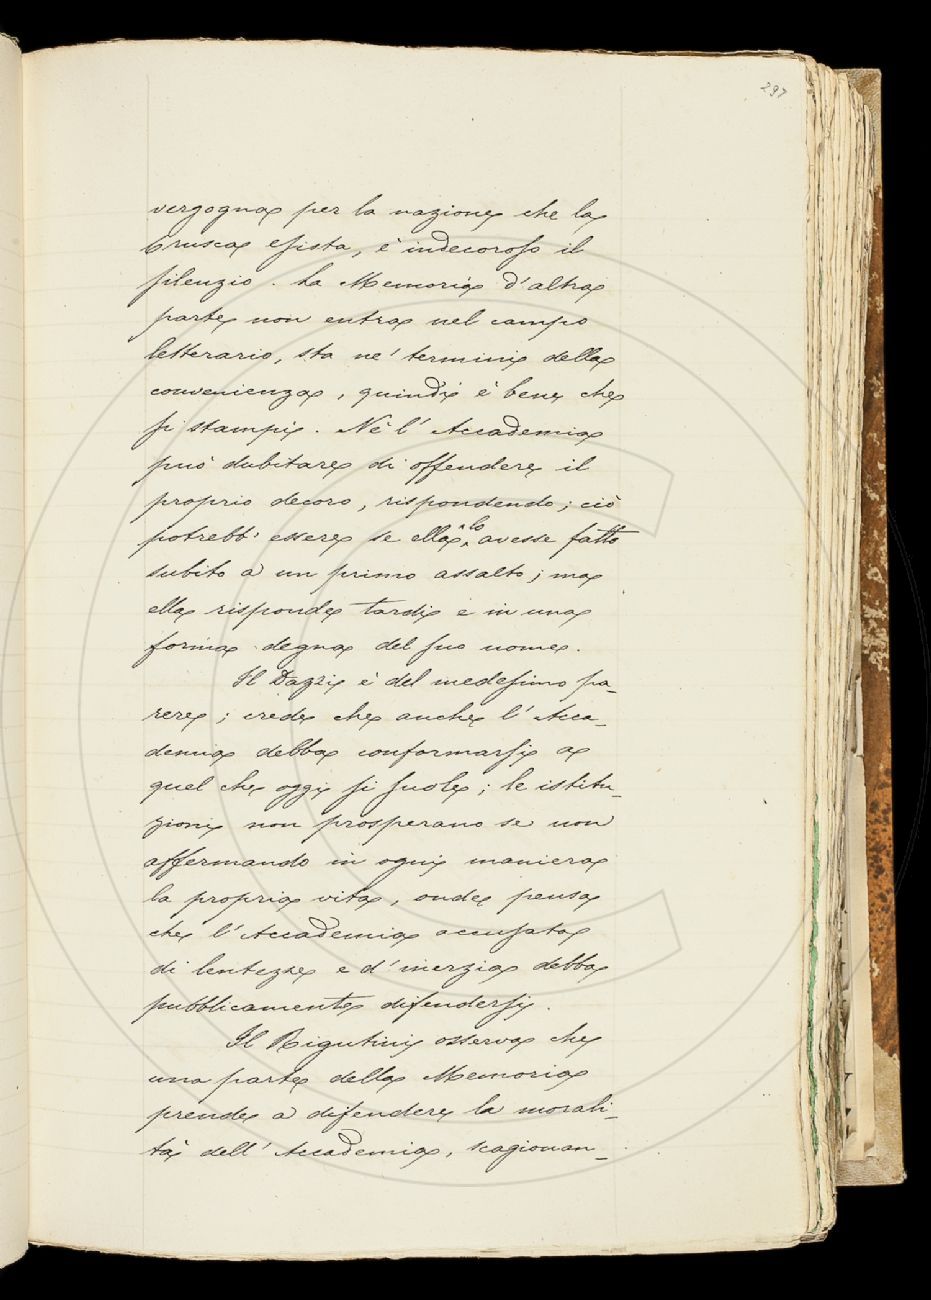 297
vergogna per la nazione che la
Crusca esista, è indecoroso il
silenzio. La Memoria d'altra
parte non entra nel campo
letterario, sta ne' termini della
convenienza, quindi è bene che
si stampi. Nè l'Accademia
può dubitare di offendere il
proprio decoro, rispondendo; ciò
potrebb' essere se ella lo avesse fatto
subito a un primo assalto; ma
ella risponde tardi e in una
forma degna del suo nome.
Il Dazzi è del medesimo pa-
rere; crede che anche l'Acca-
demia debba conformarsi a
quel che oggi si suole; le istitu-
zioni non prosperano se non
affermando in ogni maniera
la propria vita, onde pensa
che l'Accademia accusata
di lentezze e d'inerzia debba
pubblicamente difendersi.
Il Rigutini osserva che
una parte della Memoria
prende a difendere la morali-
tà dell'Accademia, scagionan-